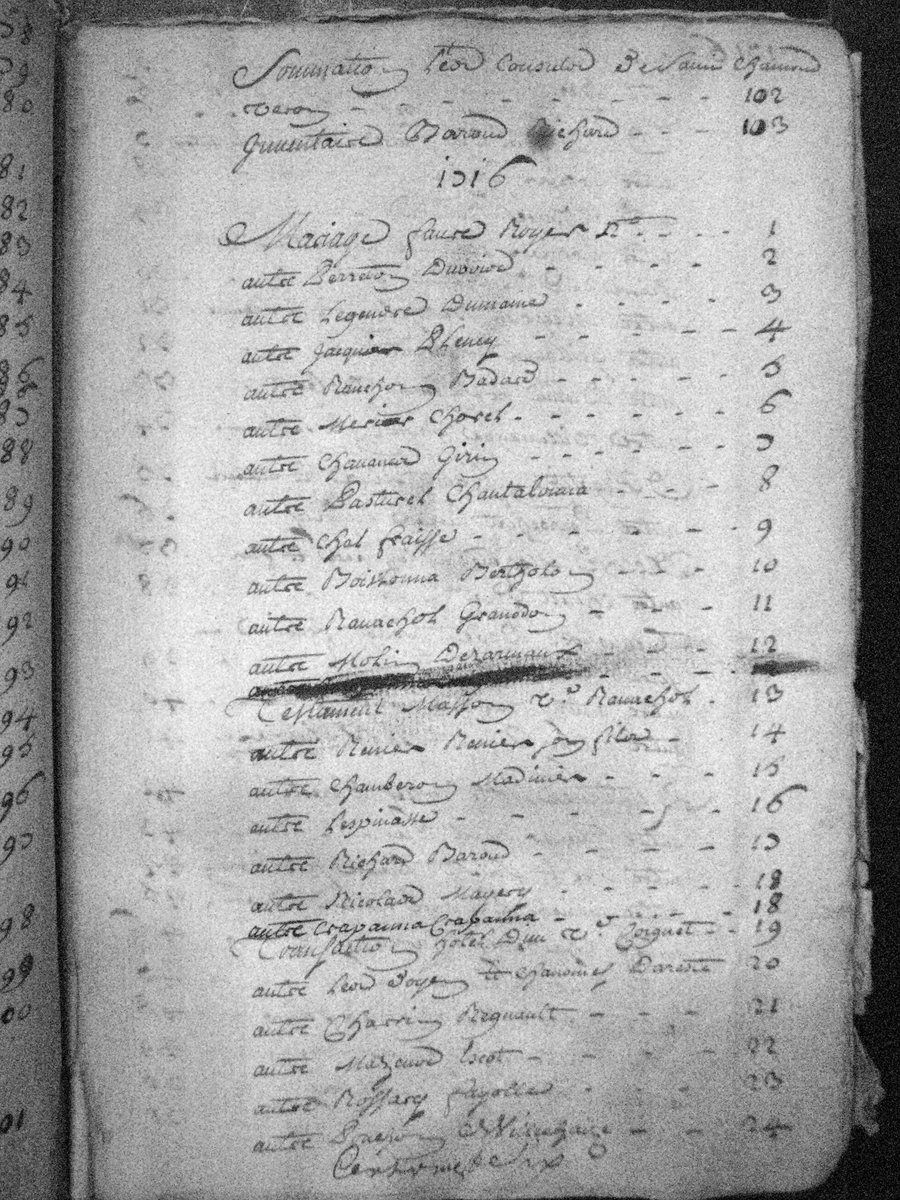 58
59
80
81
82
83
84
85
86
88
89
90
91
92
93
94
95
96
98
99
00
01
Sommation Léon Consulos De Saint Chamond
Veron - - - - - - - - 102
Inventaire Baroud Richard - - - 103
1716
Mariage faure Royer n° - - - - 1
autre Perreton - - - - 2
autre Legendre - - - - 3
autre Jacquier - - - - 4
autre Ranchon Badard - - - - 5
autre Mercier Chorel - - - - - 6
autre Girin - - - - - 7
autre Pasturel - - - 8
autre Chol fraisse - - - - - - 9
autre Boissonna Bertholon - - - 10
autre Ravachol Granodon - - - 11
autre Molin Dezarmaux - - - 12
Testament Masson Ve Ravachol - 13
autre Renier Renier son filz - - - 14
autre Chamberon Madinier - - - - 15
autre Lespinasse - - - - - - 16
autre Richard Baroud - - - - - 17
autre Nicolaud - - - - - 18
autre Crapanna Crapanna - - - - - 18
Transaction hotel Dieu Ve Coignet - - 19
autre Léon Boyer et chanoines Dareste 20
autre Charrin Regnault - - - - 21
autre Mazenod Escot - - - - - 22
autre Rossary fayolle - - - - 23
autre - - - 24